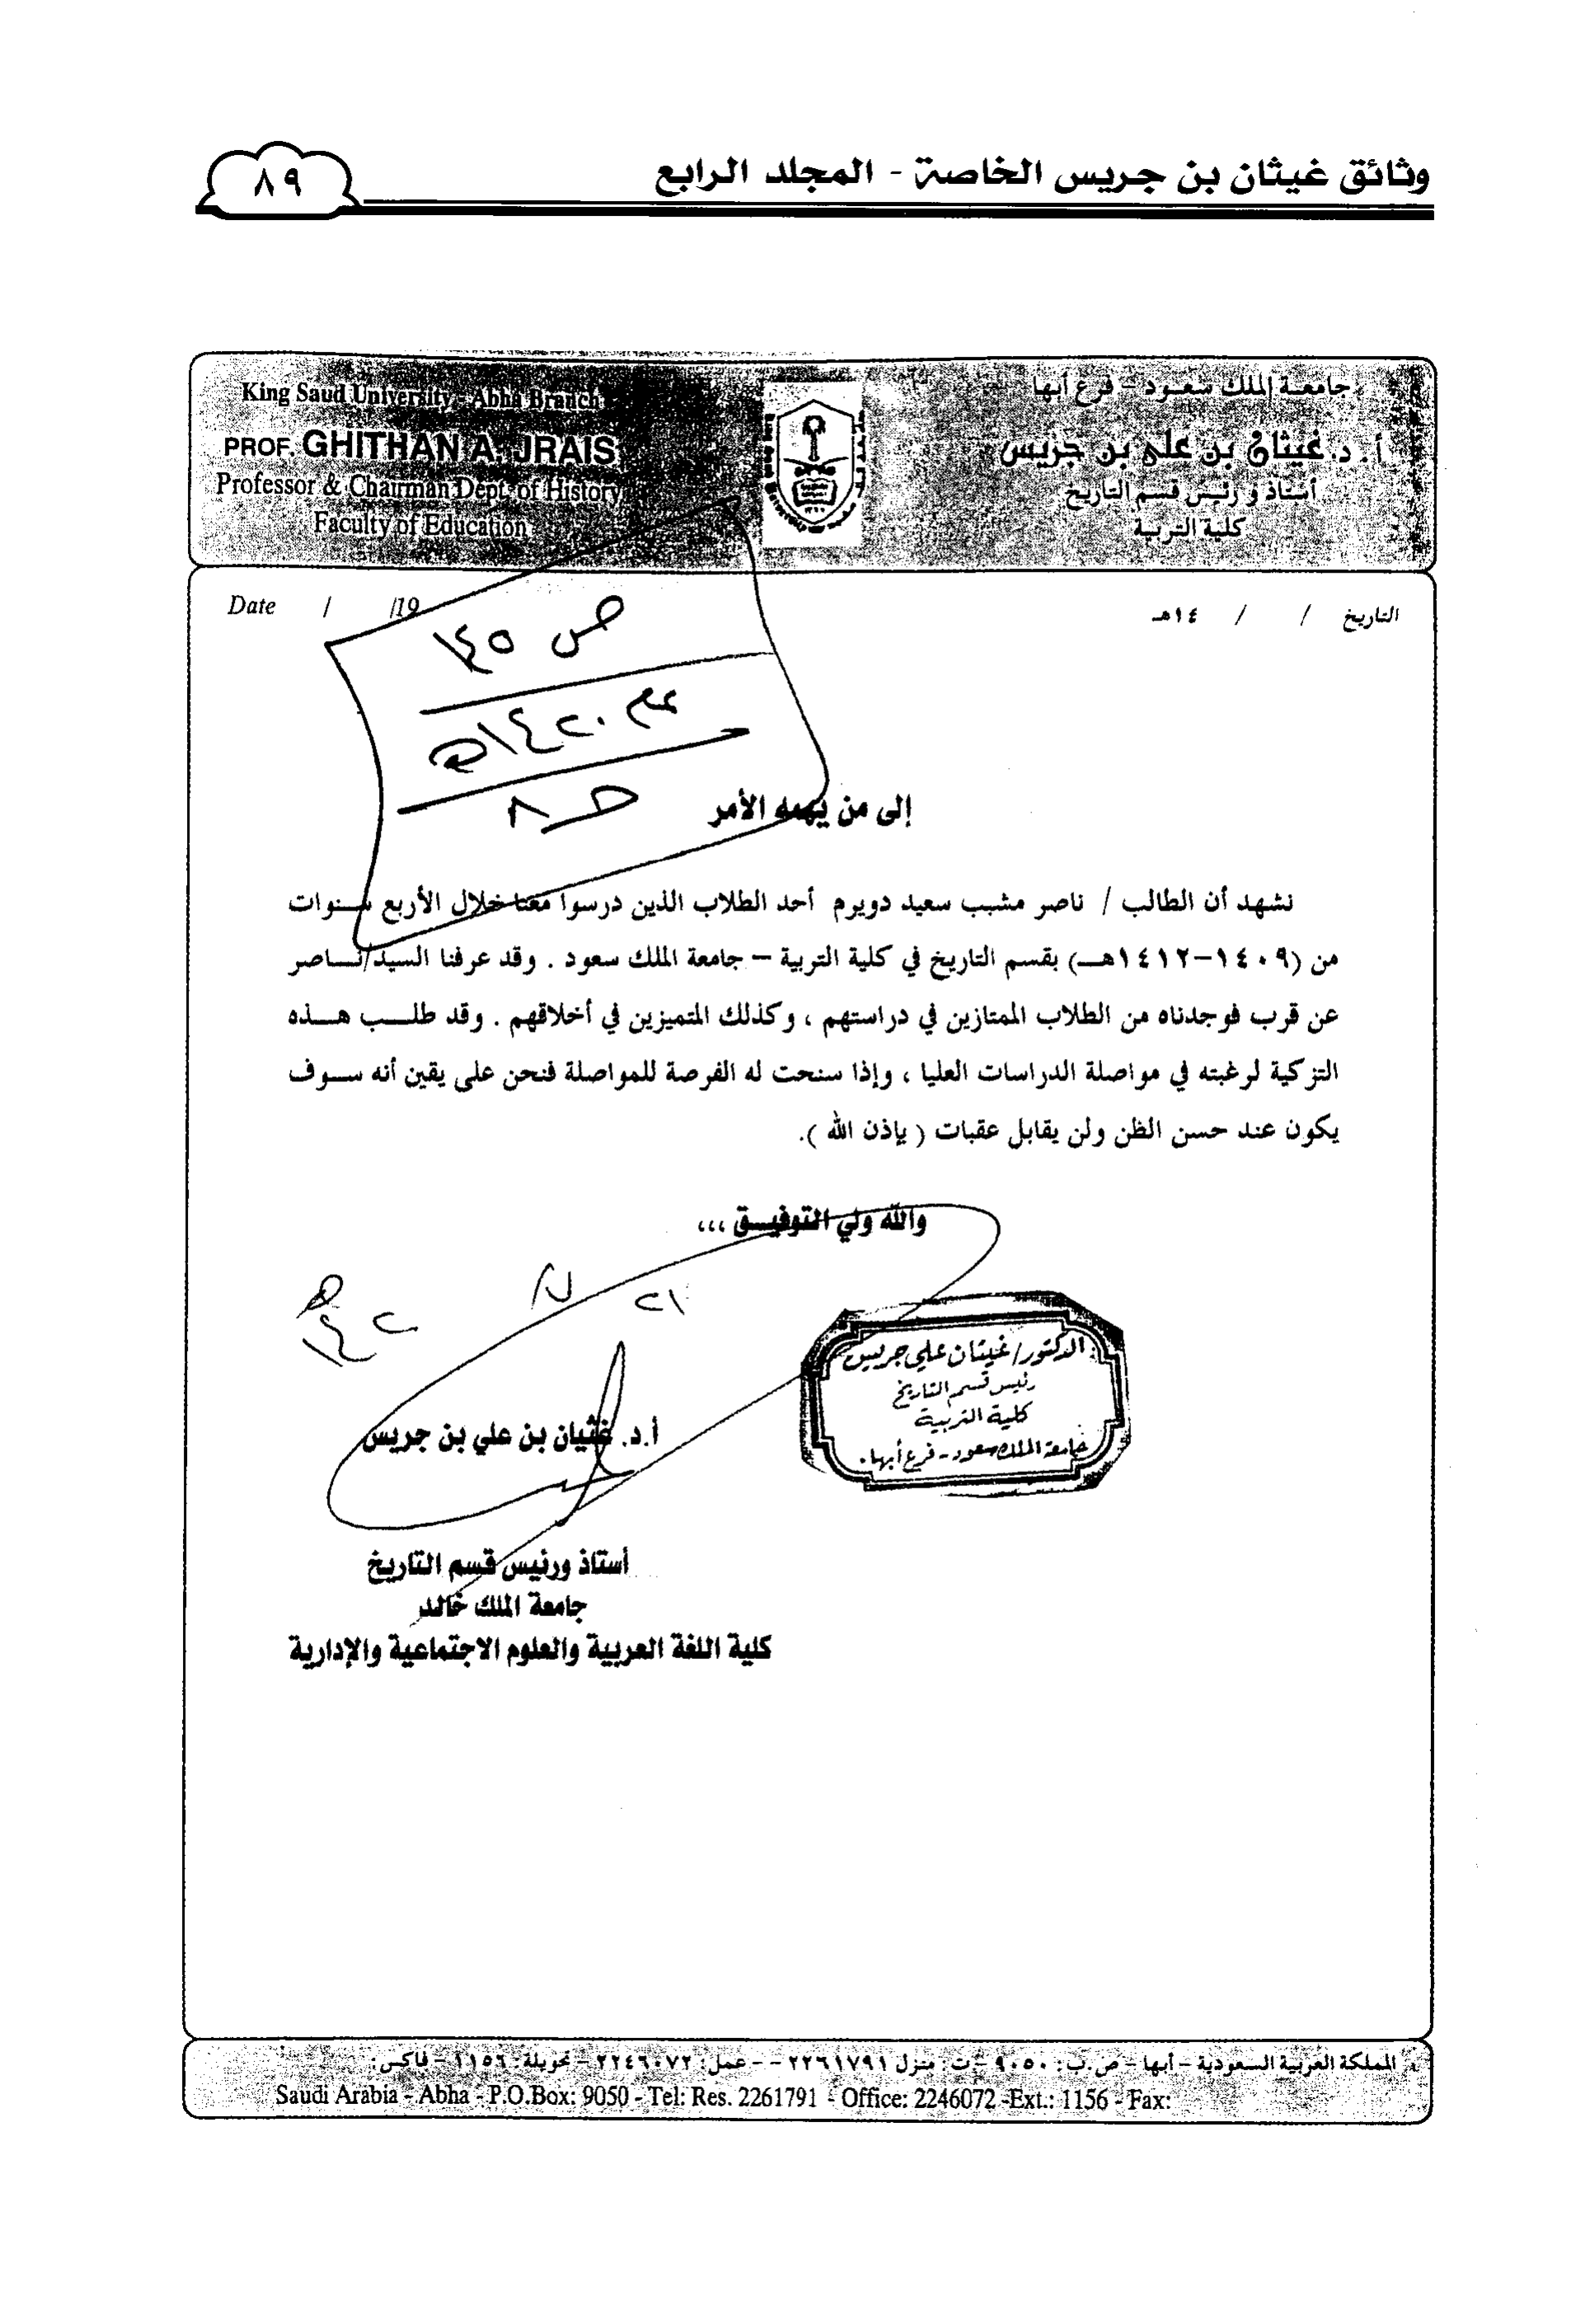 وثائق غيثان بن جريس الخاصة - المجلد الرابع
٨٩
جامعة الملك سعود - فرع أبها
أ. د. غيثان بن علي بن جريس
أستاذ و رئيس قسم التاريخ
كلية التربية
King Saud University - Abha Branch
PROF. GHITHAN A. JRAIS
Professor & Chairman Dept. of History
Faculty of Education
التاريخ / / ١٤هـ
Date / /19
ص ١٤٥
عام ١٤٢٠هـ
حـ ٨
إلى من يهمه الأمر
نشهد أن الطالب / ناصر مشبب سعيد دويرم أحد الطلاب الذين درسوا معنا خلال الأربع سنوات
من (١٤٠٩-١٤١٢هـ) بقسم التاريخ في كلية التربية – جامعة الملك سعود . وقد عرفنا السيد/ناصر
عن قرب فوجدناه من الطلاب الممتازين في دراستهم ، وكذلك المتميزين في أخلاقهم . وقد طلب هذه
التزكية لرغبته في مواصلة الدراسات العليا ، وإذا سنحت له الفرصة للمواصلة فنحن على يقين أنه سوف
يكون عند حسن الظن ولن يقابل عقبات ( بإذن الله ).
والله ولي التوفيق ،،،
الدكتور/ غيثان علي جريس
رئيس قسم التاريخ
كلية التربية
جامعة الملك سعود - فرع أبها.
أ.د. غثيان بن علي بن جريس
أستاذ ورئيس قسم التاريخ
جامعة الملك خالد
كلية اللغة العربية والعلوم الاجتماعية والإدارية
المملكة العربية السعودية - أبها - ص.ب: ٩٠٥٠ - ت: منزل ٢٢٦١٧٩١ - - عمل: ٢٢٤٦٠٧٢ - تحويلة: ١١٥٦ - فاكس:
Saudi Arabia - Abha - P.O.Box: 9050 - Tel: Res. 2261791 - Office: 2246072 -Ext.: 1156 - Fax: